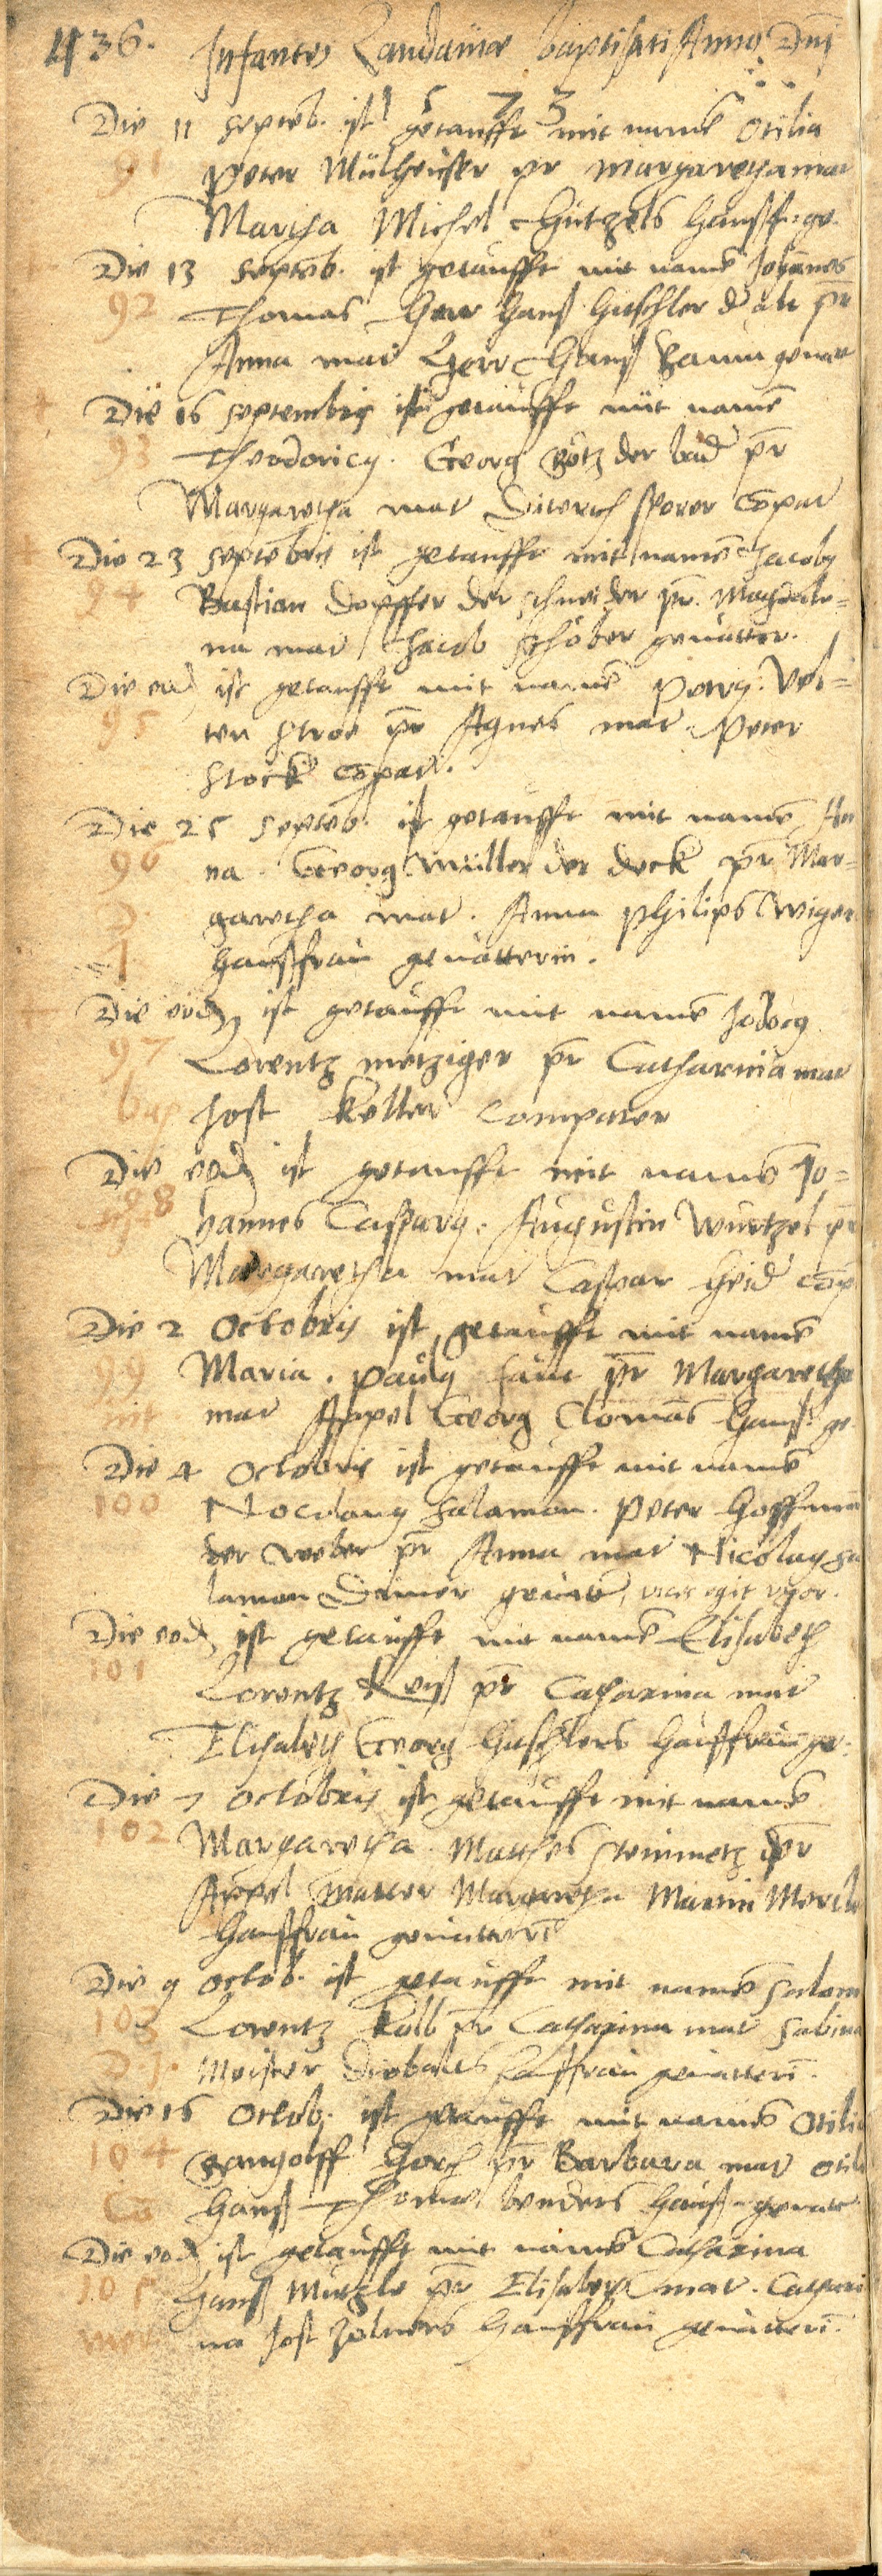 436. Infantes Landauiæ baptisati Anno Dni
1 5 7 3
Die 11 septēb. ist getaufft mit namē Otilia
91 peter Mülheuser pr margaretha mat
Martha Michel Hützels haußf. ge
Die 13 septēb. ist getaufft mit namē Johānes
92 Thomas Herr Hanß Hitschler d alt pr
Anna mat Herr Hanß Baum geuatt
Die 16 septembris ist getaufft mit namē
93 Theodoricq. Georg Götz der pr
Margaretha mat Diterich sporer cōpat
Die 23 septēbris ist getaufft mit namē Jacobq
94 Bastian dopffer der schneider pr. Magdale=
na mat Jacob schöber geuatter.
Die eod ist getaufft mit namē petrq. Vel=
95 ten stroe pr Agnes mat. Peter
stock cōpat.
Die 25 septēb. ist getaufft mit namē An
96 na. Georg Müller der deck pr Mar=
garetha mat. Anna philips Wiger
haußfrau geuatterin.
Die eod ist getaufft mit namē Jodocq
97 Lorentz metziger pr Catharina mat
Jost Keller compater
Die eod ist getaufft mit namē Jo=
98 hannes Casparq. Augustin Wurtzel pr
Margaretha mat Caspar heid cōp
Die 2 Octobris ist getaufft mit namē
99 Maria. paulq faut pr Margaretha
mat Appel Georg Clomās hauß. ge
Die 4 Octobris ist getaufft mit namē
100 Nicolaus salamon. Peter Hoffman
der weber pr Anna mat Nicolaq sa
lamon geuatt, vices egit uxor.
Die eod ist getaufft mit namē Elisabeth
101 Lorentz Reiß pr Catharina mat
Elisabeth Georg Hitschlers haußfrau ge.
Die 7 octobris ist getaufft mit namē
102 Margaretha. Matthes steinmetz pr
Appel matter Margreth Martin
haußfrau geuatterī
Die 9 octob. ist getaufft mit namē salom
103 Lorentz Kolb pr Catharina mat sabina
Meister diebolts haußfrau geuatterī.
Die 16 Octob. ist getaufft mit namē Otilia
104 Gangolff Horch pr Barbara mat Otili
Hanß Thoma benders hauß. geuatt
Die eod ist getaufft mit namē Catharina
105 Hanß pr Elisabeth mat. Cathari
na Jost zolners haußfrau geuatterī.